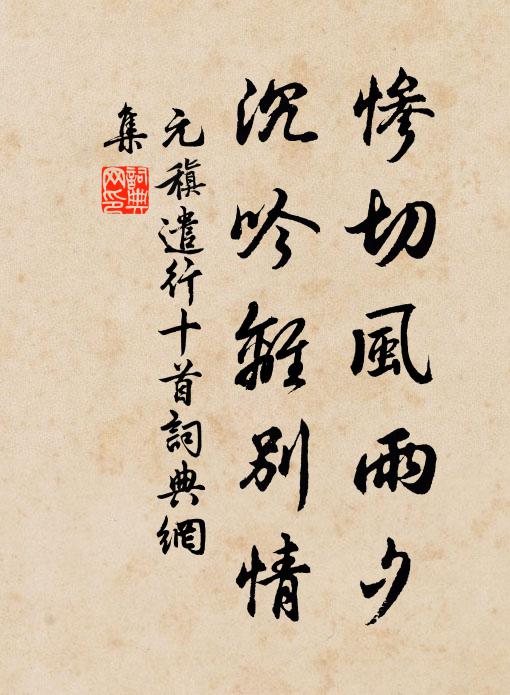 慘切風雨夕
沉吟離別情
元稹遣行十首詞典網
集
詞典
网印